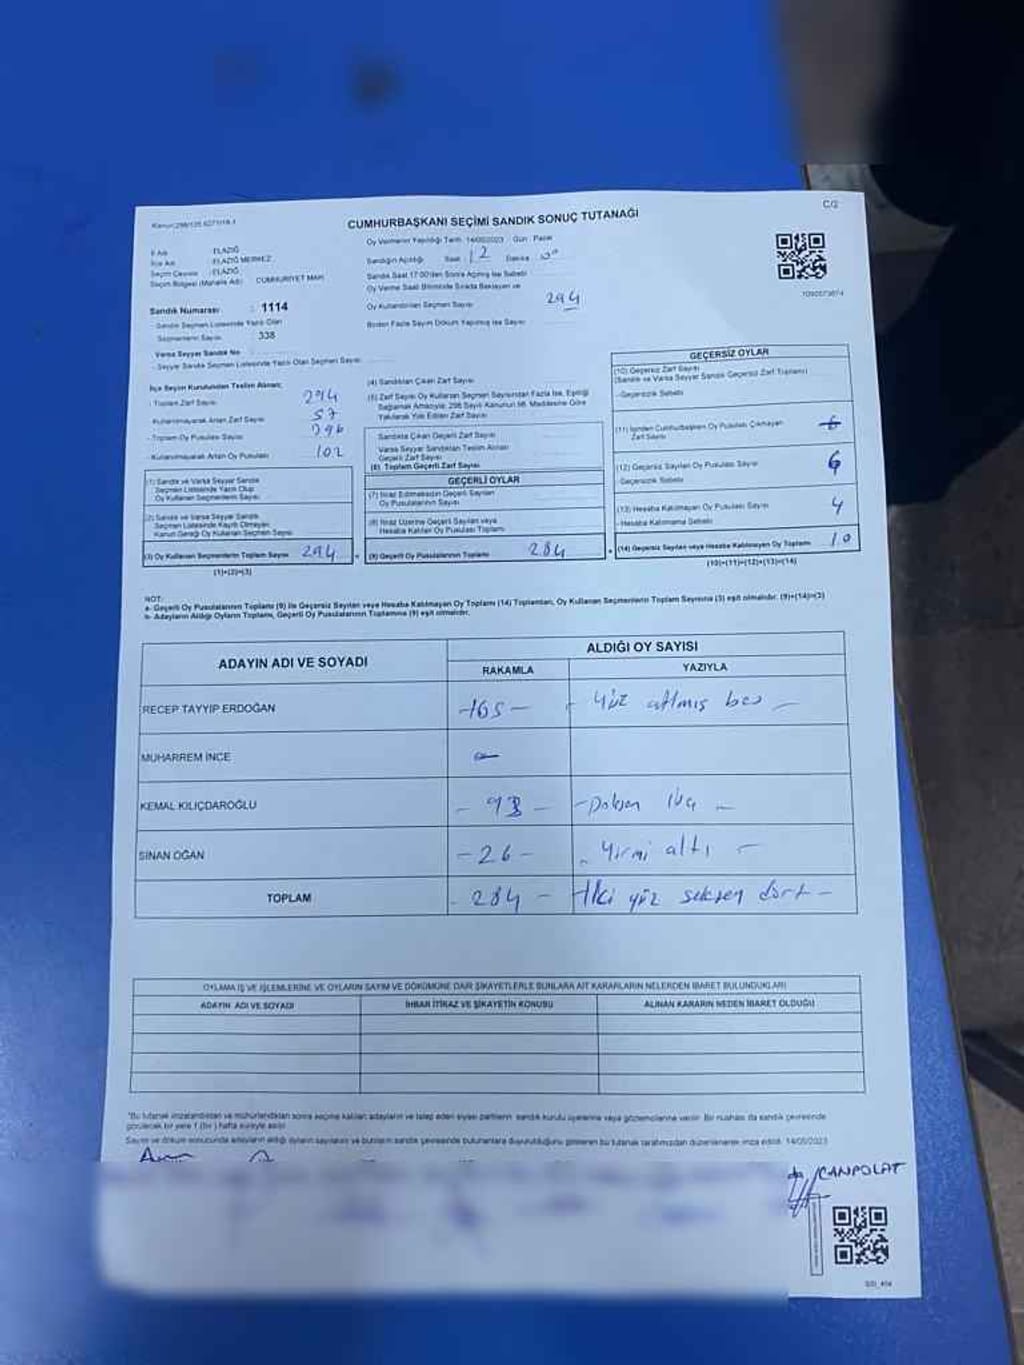 Kanun:298/135 6271/18-1
C/2
CUMHURBAŞKANI SEÇİMİ SANDIK SONUÇ TUTANAĞI
İl Adı : ELAZIĞ
İlçe Adı : ELAZIĞ MERKEZ
Seçim Çevresi : ELAZIĞ
Seçim Bölgesi (Mahalle Adı) : CUMHURİYET MAH.
Sandık Numarası : 1114
- Sandık Seçmen Listesinde Yazılı Olan
Seçmenlerin Sayısı : 338
Varsa Seyyar Sandık No
- Seyyar Sandık Seçmen Listesinde Yazılı Olan Seçmen Sayısı
Oy Vermenin Yapıldığı Tarih: 14/05/2023 Gün : Pazar
Sandığın Açıldığı Saat : 12 Dakika
Sandık Saat 17:00'den Sonra Açılmış İse Sebebi
Oy Verme Saati Bitiminde Sırada Bekleyen ve
Oy Kullandırılan Seçmen Sayısı 294
Birden Fazla Sayım Döküm Yapılmış İse Sayısı
İlçe Seçim Kurulundan Teslim Alınan;
- Toplam Zarf Sayısı 294
- Kullanılmayarak Artan Zarf Sayısı 57
- Toplam Oy Pusulası Sayısı 396
- Kullanılmayarak Artan Oy Pusulası 102
(1) Sandık ve Varsa Seyyar Sandık
Seçmen Listesinde Yazılı Olup
Oy Kullanan Seçmenlerin Sayısı
(2) Sandık ve Varsa Seyyar Sandık
Seçmen Listesinde Kayıtlı Olmayan
Kanun Gereği Oy Kullanan Seçmen Sayısı
(3) Oy Kullanan Seçmenlerin Toplam Sayısı 294
(1)+(2)=(3)
(4) Sandıktan Çıkan Zarf Sayısı
(5) Zarf Sayısı Oy Kullanan Seçmen Sayısından Fazla İse, Eşitliği
Sağlamak Amacıyla, 298 Sayılı Kanunun 98. Maddesine Göre
Yakılarak Yok Edilen Zarf Sayısı
Sandıkta Çıkan Geçerli Zarf Sayısı
Varsa Seyyar Sandıktan Teslim Alınan
Geçerli Zarf Sayısı
(6) Toplam Geçerli Zarf Sayısı
GEÇERLİ OYLAR
(7) İtiraz Edilmeksizin Geçerli Sayılan
Oy Pusulalarının Sayısı
(8) İtiraz Üzerine Geçerli Sayılan veya
Hesaba Katılan Oy Pusulası Toplamı
(9) Geçerli Oy Pusulalarının Toplamı 284
GEÇERSİZ OYLAR
(10) Geçersiz Zarf Sayısı
(Sandık ve Varsa Seyyar Sandık Geçersiz Zarf Toplamı)
- Geçersizlik Sebebi
(11) İçinden Cumhurbaşkanı Oy Pusulası Çıkmayan
Zarf Sayısı
(12) Geçersiz Sayılan Oy Pusulası Sayısı 6
- Geçersizlik Sebebi
(13) Hesaba Katılmayan Oy Pusulası Sayısı 4
- Hesaba Katılmama Sebebi
(14) Geçersiz Sayılan veya Hesaba Katılmayan Oy Toplamı 10
(10)+(11)+(12)+(13)=(14)
NOT:
a- Geçerli Oy Pusulalarının Toplamı (9) ile Geçersiz Sayılan veya Hesaba Katılmayan Oy Toplamı (14) Toplamları, Oy Kullanan Seçmenlerin Toplam Sayısına (3) eşit olmalıdır. (9)+(14)=(3)
b- Adayların Aldığı Oyların Toplamı, Geçerli Oy Pusulalarının Toplamına (9) eşit olmalıdır.
ADAYIN ADI VE SOYADI ALDIĞI OY SAYISI
RAKAMLA YAZIYLA
RECEP TAYYİP ERDOĞAN -165- - Yüz atmış beş -
MUHARREM İNCE -
KEMAL KILIÇDAROĞLU - 93 -
SİNAN OĞAN - 26 - - Yirmi altı -
TOPLAM - 284 - İki yüz seksen dört -
OYLAMA İŞ VE İŞLEMLERİNE VE OYLARIN SAYIM VE DÖKÜMÜNE DAİR ŞİKAYETLERLE BUNLARA AİT KARARLARIN NELERDEN İBARET BULUNDUKLARI
ADAYIN ADI VE SOYADI İHBAR İTİRAZ VE ŞİKAYETİN KONUSU ALINAN KARARIN NEDEN İBARET OLDUĞU
*Bu tutanak imzalandıktan ve mühürlendikten sonra seçime katılan adayların ve talep eden siyasi partilerin sandık kurulu üyelerine veya gözlemcilerine verilir. Bir nüshası da sandık çevresinde
görülecek bir yere 1 (bir) hafta süreyle asılır.
Sayım ve döküm sonucunda adayların aldığı oyların sayılarını ve bunların sandık çevresinde bulunanlara duyurulduğunu gösteren bu tutanak tarafımızdan düzenlenerek imza edildi. 14/05/2023
CANPOLAT